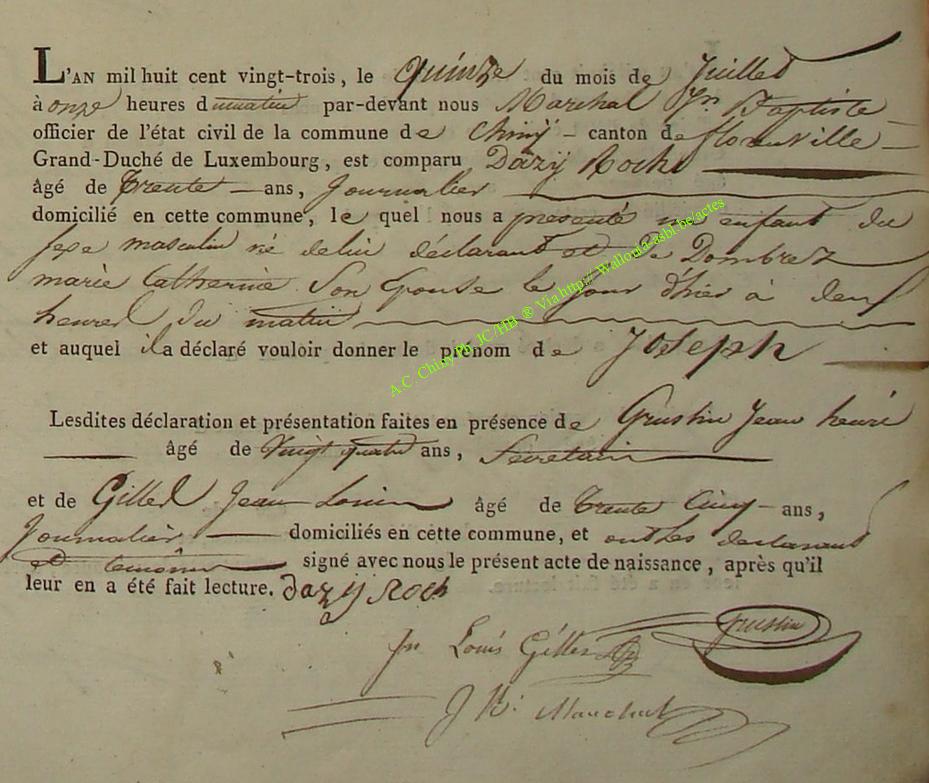 L'AN mil huit cent vingt-trois, le quinze du mois de Juillet
à onze heures du matin par-devant nous Marchal Jn Baptiste
officier de l'état civil de la commune de Chiny canton de florenville
Grand-Duché de Luxembourg, est comparu Dazÿ Roch
âgé de trente ans, Journalier
domicilié en cette commune, le quel nous a presenté un enfant du
sexe masculin né de lui déclarant et de Dombret
marie Catherine son Epouse le jour d'hier à deux
heures du matin
et auquel il a déclaré vouloir donner le prénom de Joseph
Lesdites déclaration et présentation faites en présence de Grustin Jean henri
âgé de vingt quatre ans, Secretair
et de Gilles Jean Louis âgé de trente Cinq ans,
Journalier domiciliés en cette commune, et ont les declarant
et temoins signé avec nous le présent acte de naissance, après qu'il
leur en a été fait lecture. dazÿ Roch
Grustin
Jn Louis Gilles
J Bt Marchal
A.C. Chiny Pr JC/HB ® Via http// Wallonia-asbl.be/actes